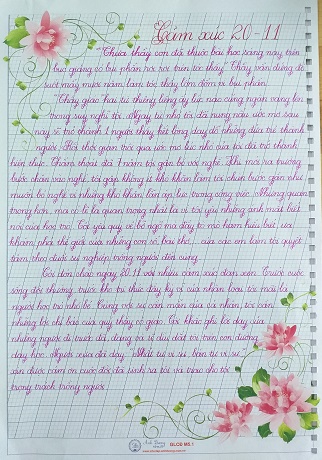 Cảm xúc 20-11
"Thưa thầy con đã thuộc bài học sáng nay trên
bục giảng có bụi phấn rơi rơi trên tóc thầy". Thấy vẫn đứng đó
suốt mấy mươi năm, làm tóc thầy lốm đốm vì bụi phấn.
Thầy giáo hai từ thiêng liêng ấy lúc nào cũng ngân vang lên
trong suy nghĩ tôi. Ngay từ nhỏ tôi đã nung nấu ước mơ sau
này sẽ trở thành 1 người thầy hết lòng dạy dỗ những đứa trẻ thành
người. Rồi thời gian trôi qua ước mơ lúc nhỏ của tôi đã trở thành
hiện thực. Thấm thoát đã 7 năm tôi gắn bó với nghề. Khi mới ra trường
bước chân vào nghề tôi gặp không ít khó khăn làm tôi chùn bước gần như
muốn bỏ nghề vì những khó khăn lẫn áp lực trong công việc. Nhưng quan
trọng hơn, mà có lẽ là quan trọng nhất là vì tôi yêu những ánh mắt biết
nói của học trò. Tôi yêu quý vẻ bỡ ngỡ mà đầy tò mò ham hiểu biết và
khám phá thế giới của những cô, cậu bé, của các em làm tôi quyết
tâm theo đuổi sự nghiệp trồng người đến cùng.
Tôi đón chào ngày 20.11 với nhiều cảm xúc đan xen. Trước cuộc
sống đời thường, trước kho tri thức đầy kỳ vĩ của nhân loại tôi mãi là
người học trò nhỏ bé. Cùng với sự cần mẫn của bản thân, tôi cần
những lời chỉ bảo của quý thầy cô giáo. Tôi khắc ghi lời dạy của
những người đi trước đã, đang và sẽ dìu dắt tôi trên con đường
dạy học. Người xưa đã dạy "Nhất tự vi sư, bán tự vi sư",
xin được cảm ơn cuộc đời đã sinh ra tôi và trao cho tôi
trọng trách trồng người.
Anh Dương
GLCĐ M5.1